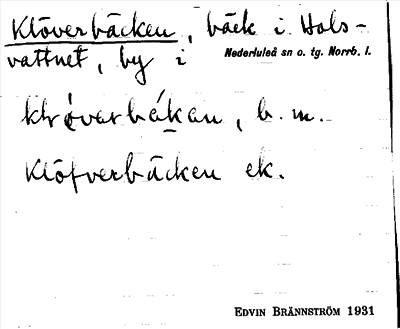 Klöverbäcken, bäck i Hols-
vattnet, by i Nederluleå sn o. tg. Norrb. l.
klǿvarbäkan, b. m.
Klöfverbäcken ek.
EDVIN BRÄNNSTRÖM 1931